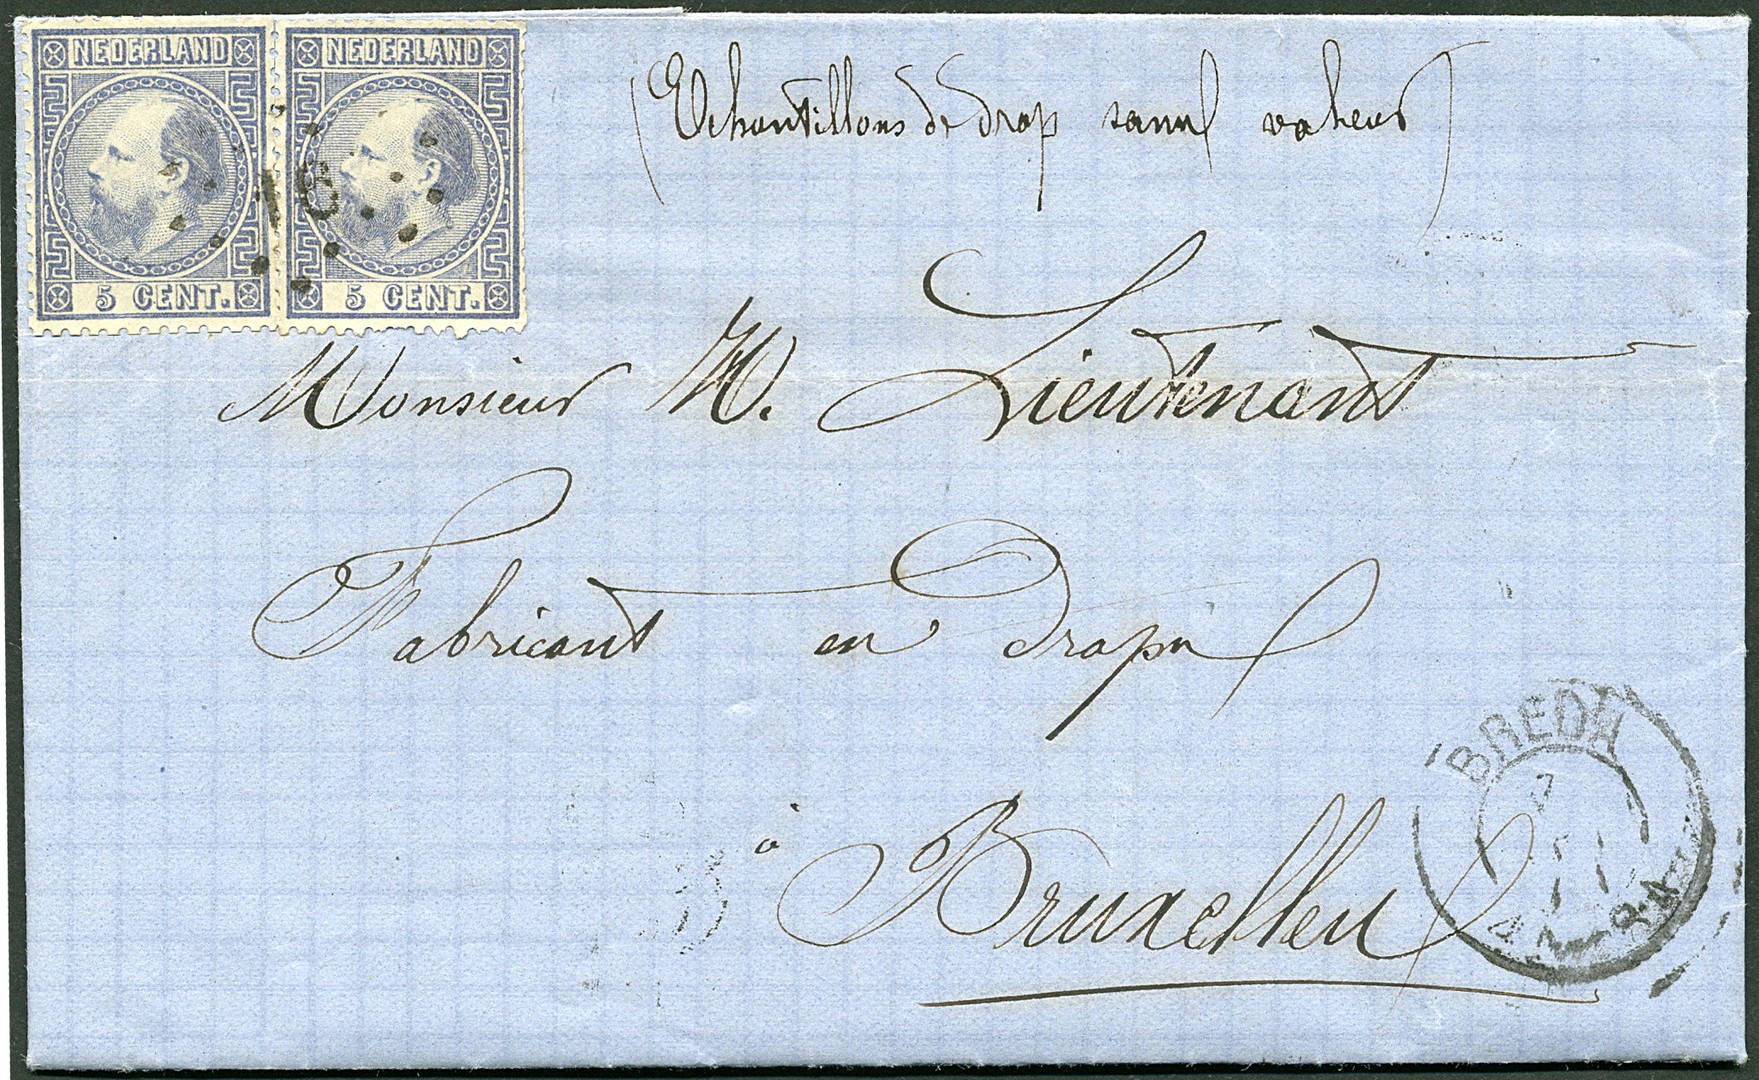 NEDERLAND NEDERLAND
5 CENT. 5 CENT.
18
(Echantillons de drap sans valeur)
Monsieur W. Lieutenant
Fabricant en draps
à Bruxelles
BREDA